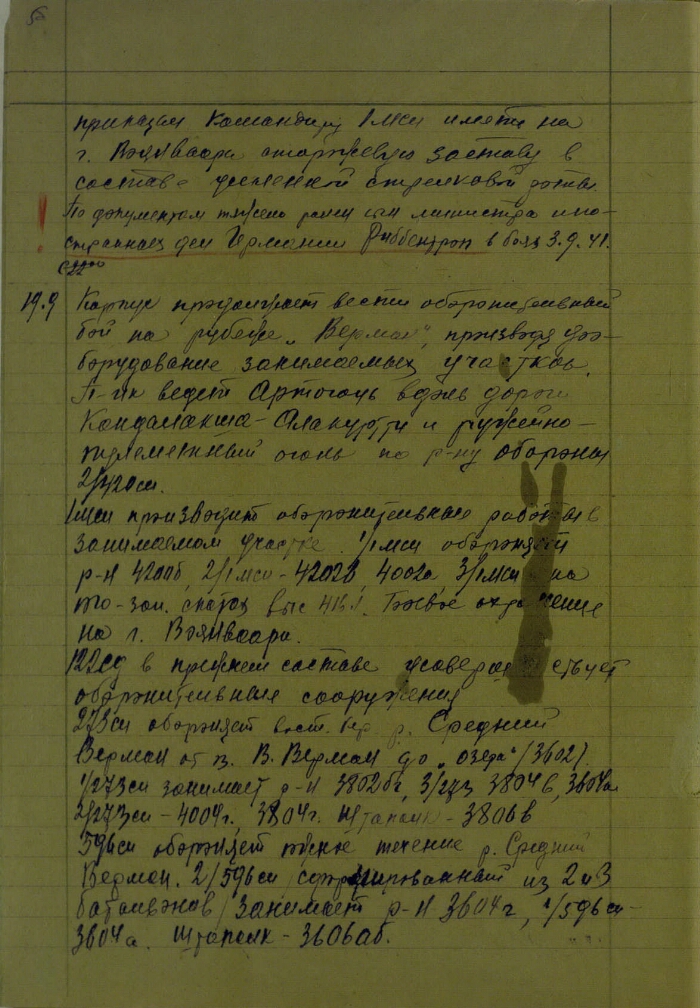 приказал Командиру 1мсп иметь на
г. Вояйваара сторожевую заставу в
составе усиленной стрелковой роты.
По документам тяжело ранен сын министра ино-
странных дел Германии Риббентроп в боях 3.9.41.
19.9 Корпус продолжает вести оборонительный
бой на рубеже „Верман", производя
борудование занимаемых участков.
П-ик ведет Артогонь вдоль дороги
Кандалакша-Алакуртти и ружейно-
пулеметный огонь по р-ну обороны
2/420сп.
1мсп производит оборонительные работы в
занимаемом участке. 1/1мсп обороняет
р-н 4200б, 2/1мсп - 4202в, 4002а, 3/1мсп на
скатах выс. Боевое охранение
на г. Вояйваара.
122сд в прежнем составе усовершенствует
оборонительные сооружения
273сп обороняет вост. бер. р. Средний
Верман от оз. В. Верман до „озера" /3602/.
1/273сп занимает р-н 3802бг, 3/273 3804в, 3604а
2/273сп - 4004г, 3804г. Штаполк - 3806в
596сп обороняет нижнее течение р. Средний
Верман. 2/596сп сформированный из 2 и 3
батальонов, занимает р-н 3604г, 1/596сп -
3604а. Штаполк - 3606аб.
5